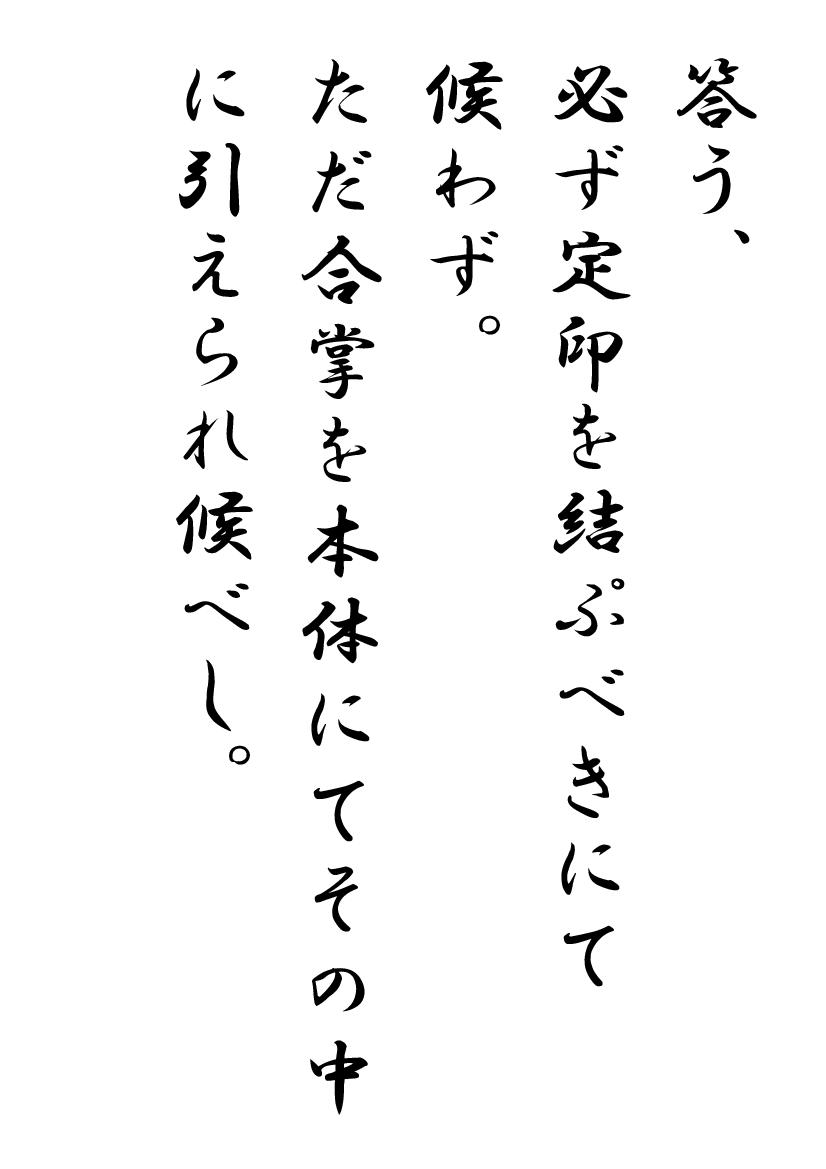 答う、
必ず定印を結ぷべきにて
候わず。
ただ合掌を本体にてその中
に引えられ候べし。